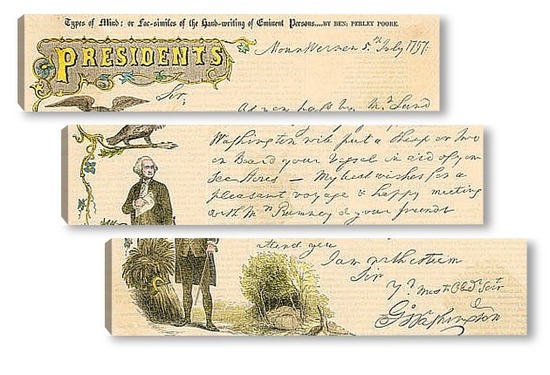 Types of Mind: or Fac-similes of the Hand-writing of Eminent Persons....BY BEN: PERLEY POORE.
PRESIDENTS
Mount Vernon 5th July 1797.
Sir,
by Mr Lund
Washington will put a Sheep or two
on Board your Vessel in aid of your
Sea Stores — My best wishes for a
pleasant voyage & happy meeting
with Mrs Rumney & your friends
attend you
I am with esteem
Sir
Yr most Obedt Servt
Go Washington